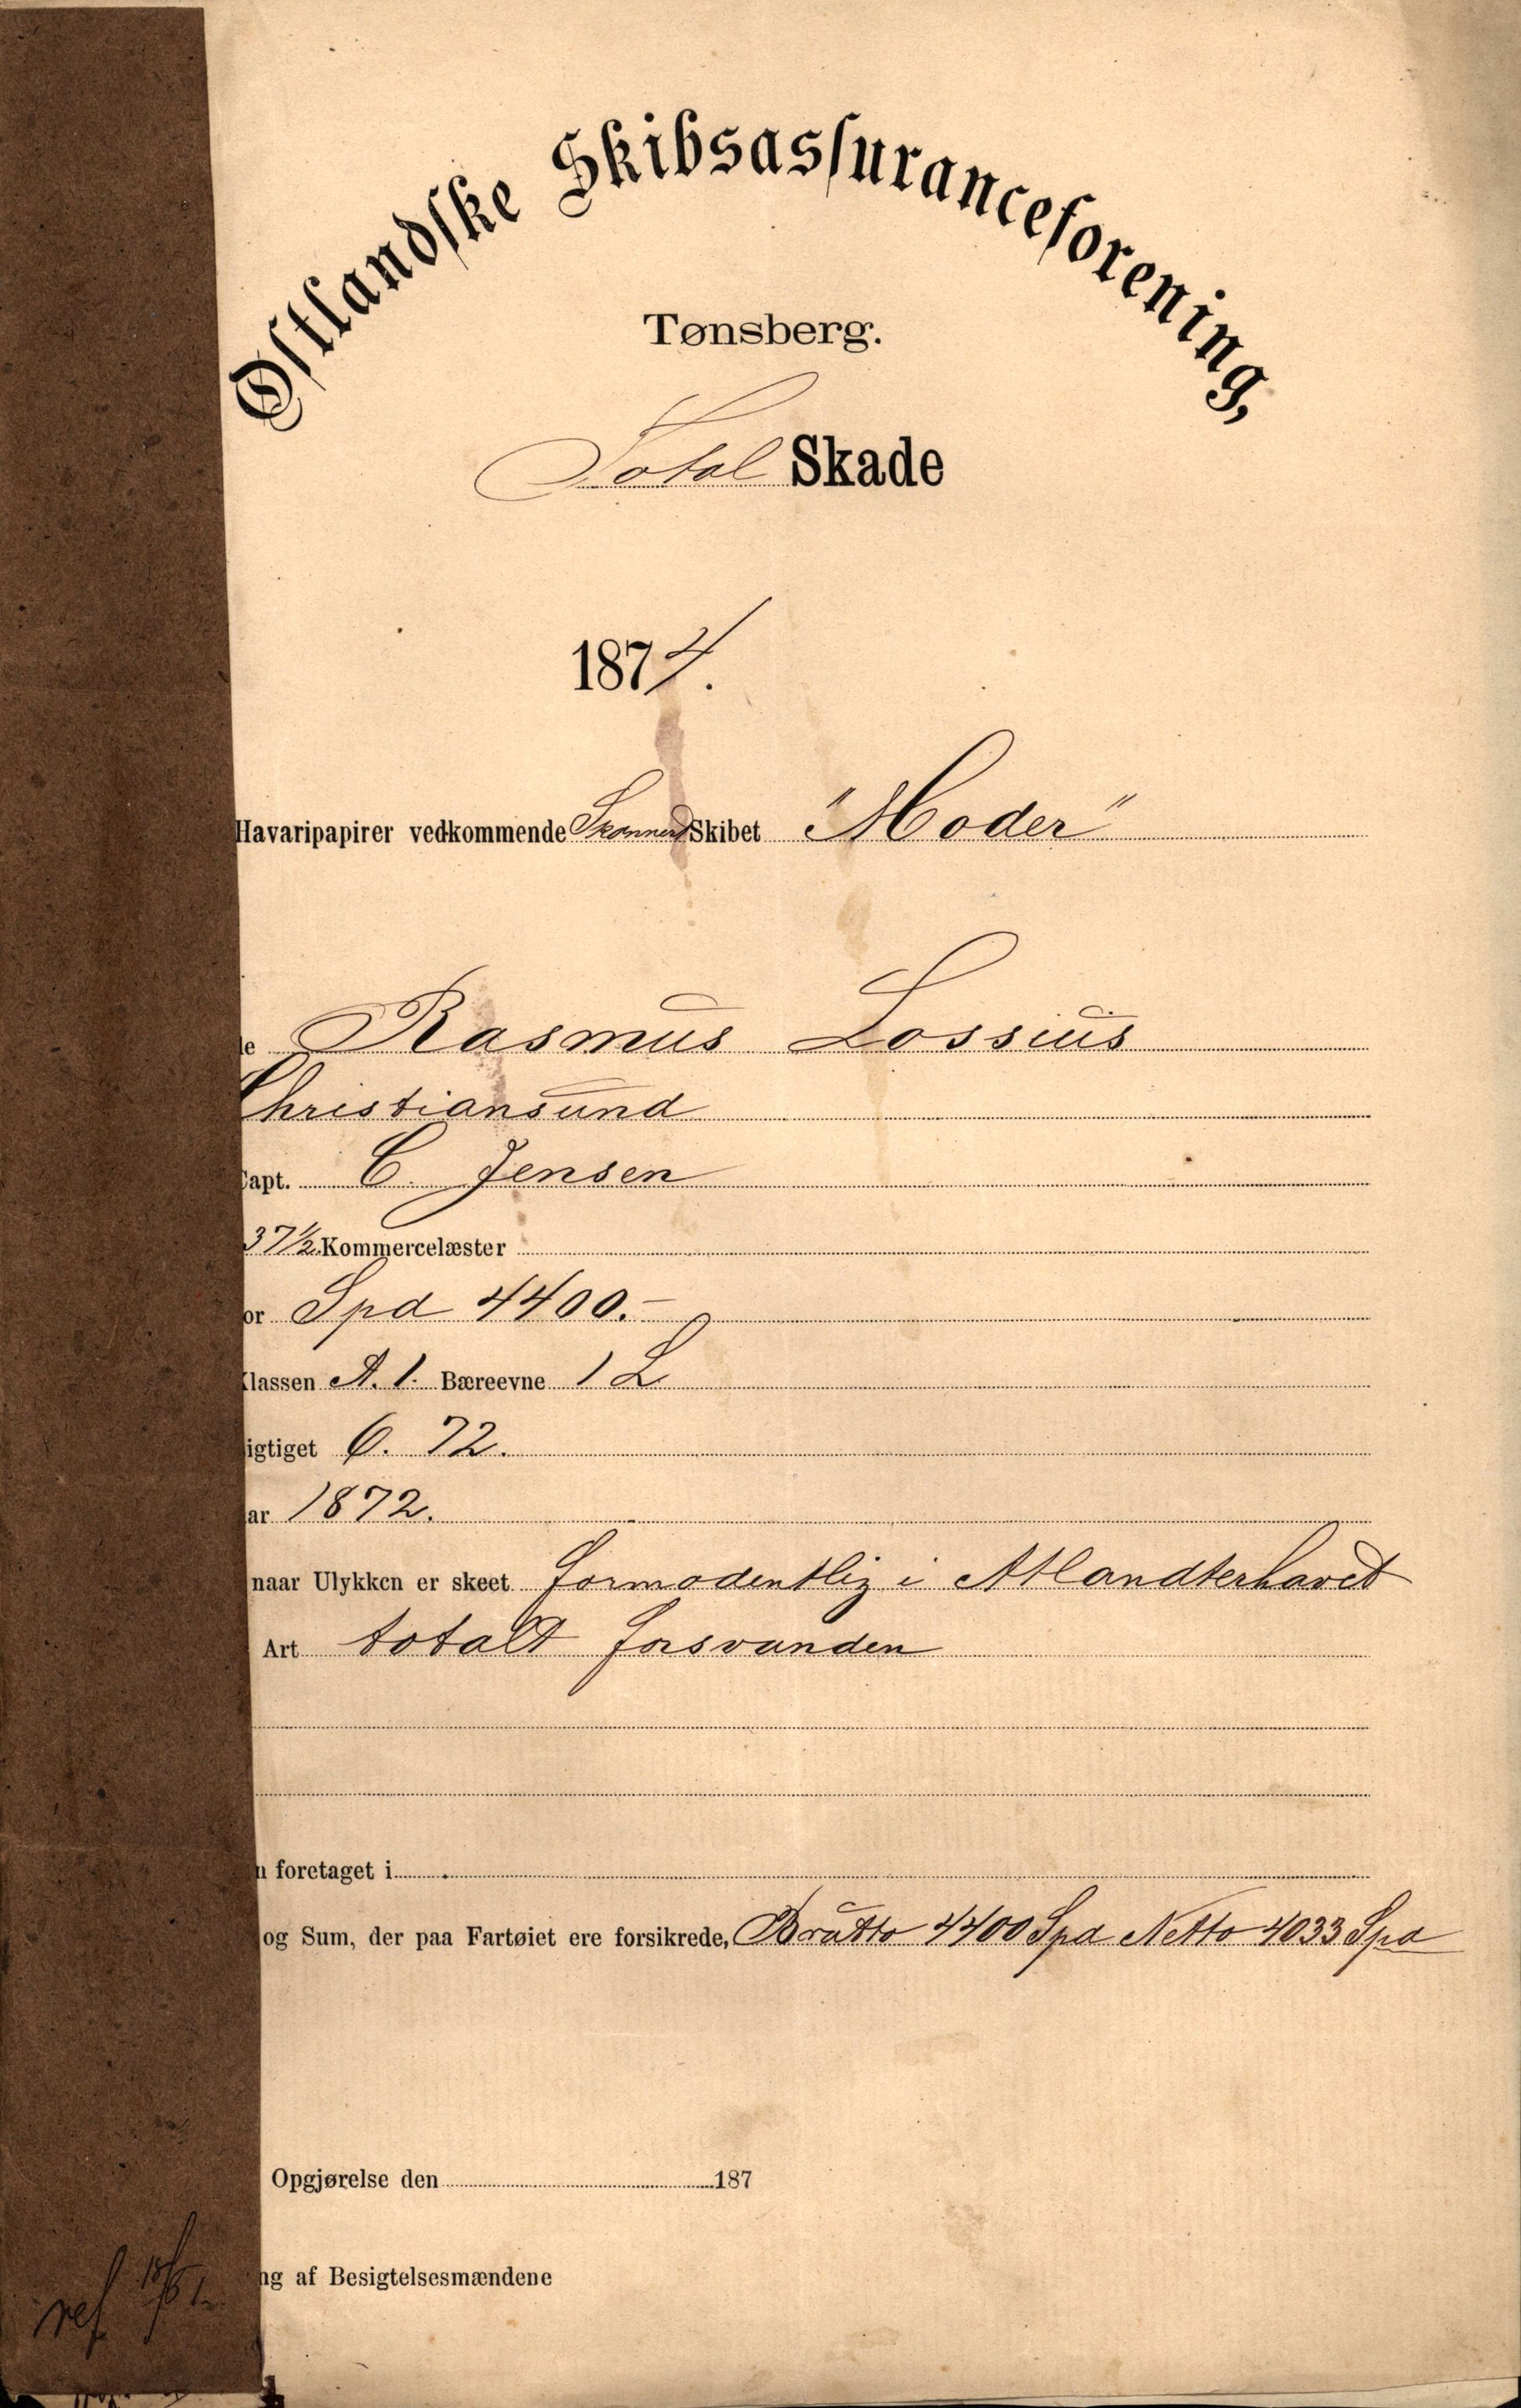 Østlandske Skibsassuranceforening,
Tønsberg.
Total Skade
1874.
Havaripapirer vedkommende Skonnert Skibet "Moder"
Rasmus Lossius
Christiansund
Capt. C. Jensen
37 1/2 Kommercelæster
or Spd 4400.-
Klassen A. 1. Bæreevne 1 L
igtiget 6. 72.
ar 1872.
naar Ulykken er skeet formodentlig i Atlandterhavet
Art totalt forsvunden
foretaget i
og Sum, der paa Fartøiet ere forsikrede, Brutto 4400 Spd Netto 4033 Spd
Opgjørelse den 187
ng af Besigtelsesmændene
ref